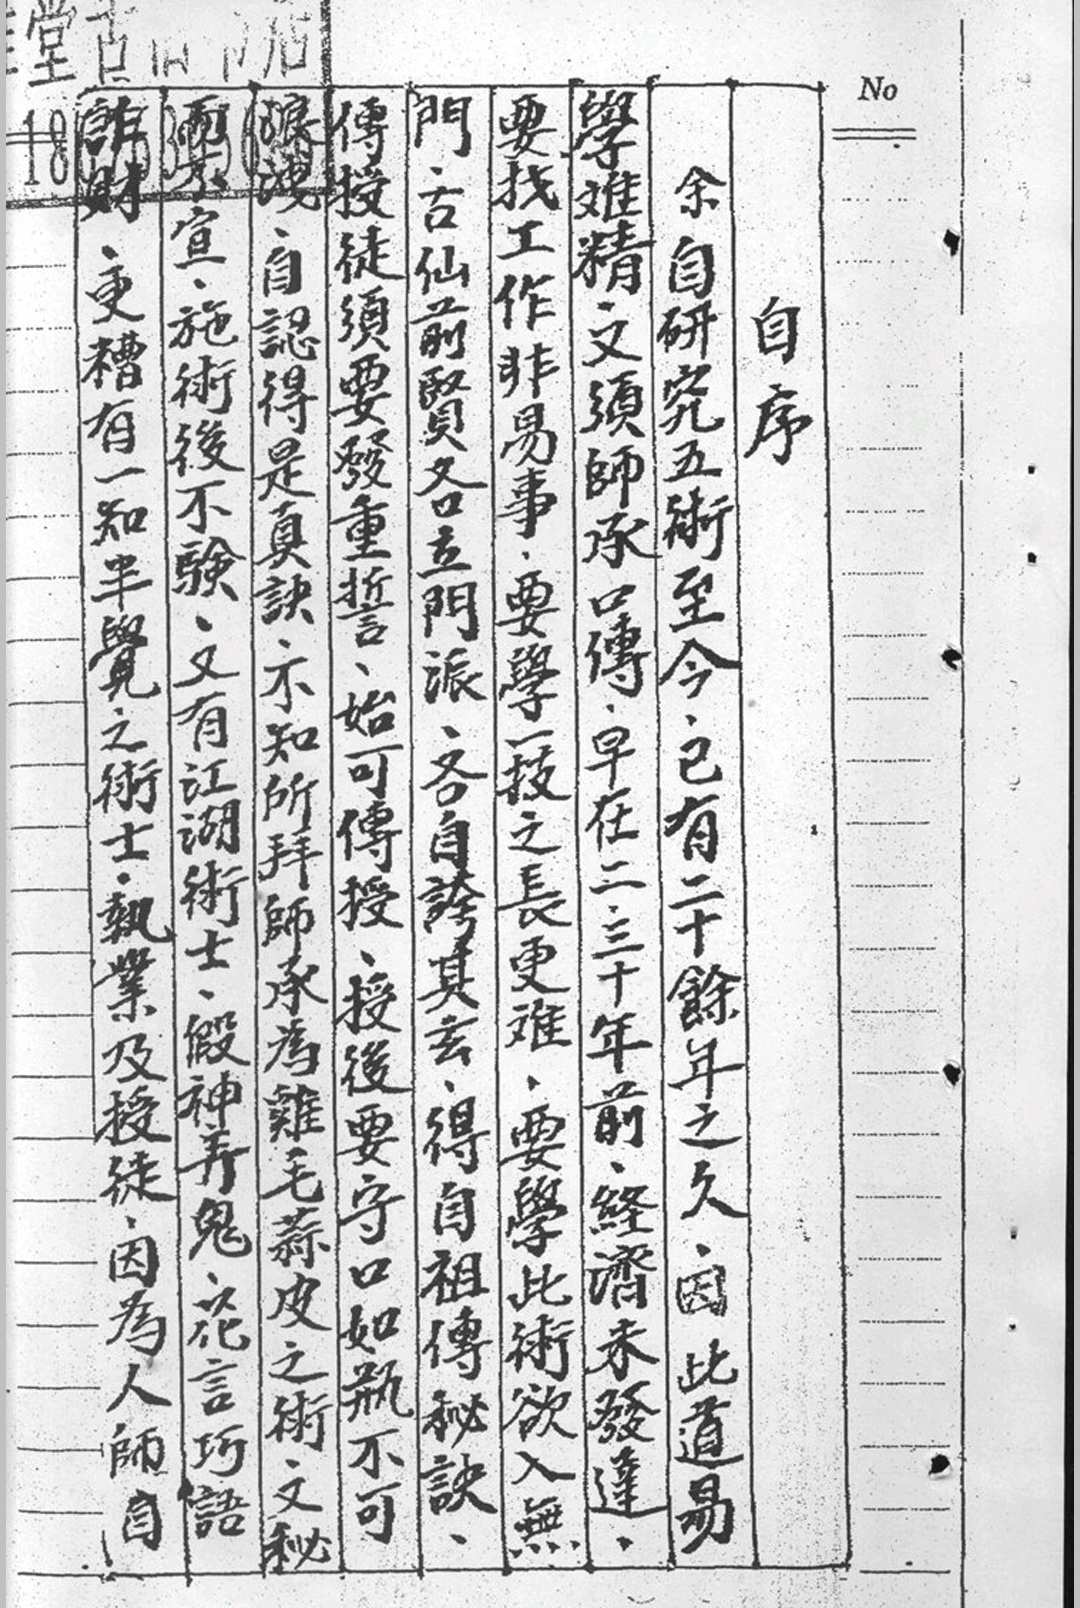 No
自序
余自研究五術至今、已有二十餘年之久、因此道易
學难精、又須師承口傳、早在二、三十年前、経濟未發達、
要找工作非易事、要學一技之長更难、要學此術欲入無
門、古仙前賢各立門派、各自誇其玄、得自祖傳秘訣、
傳授徒須要發重誓、始可傳授、授後要守口如瓶不可
洩、自認得是真訣、不知所拜師承為雞毛蒜皮之術、又秘
而不宣、施術後不験、又有江湖術士、假神弄鬼、花言巧語
詐財、更糟有一知半覺之術士、執業及授徒、因為人師自
堂古
18